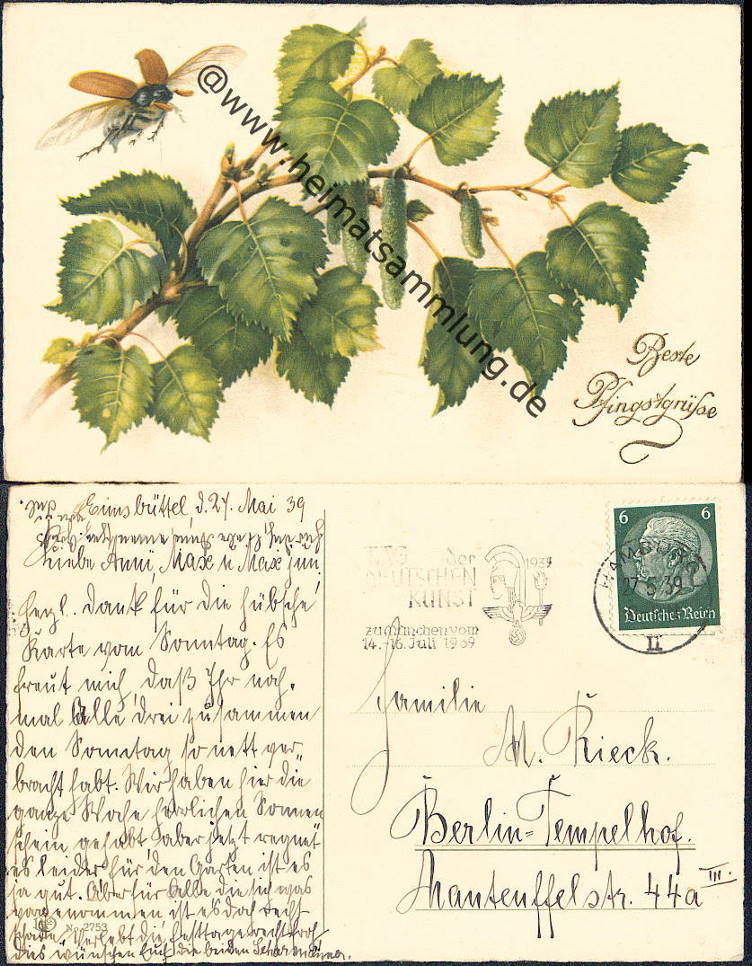 @www.heimatsammlung.de
Beste
Pfingstgrüße
Eimsbüttel, d. 27. Mai 39
Liebe Anni, Max u Max jun.
Hezl. Dank für die hübsche
Karte vom Sonntag. Es
freut mich, daß Ihr noch-
mal Alle drei zusammen
den Sonntag so nett ver-
bracht habt. Wir haben hier die
ganze Woche herrlichen Sonnen
schein gehabt, aber jetzt regnet
es leider für den Garten ist es
ja gut. Aber für Alle die sich was
vorgenommen ist es doch recht
schade. Verlebt die Festtage recht froh
dies wünschen Euch die beiden
No. 2753
TAG der
DEUTSCHEN
KUNST
1939
zu München vom
14.-16. Juli 1939
6 6
Deutsches Reich
HAMBURG
27.5.39
II
Familie
M. Rieck.
Berlin-Tempelhof.
Manteuffelstr. 44a III.